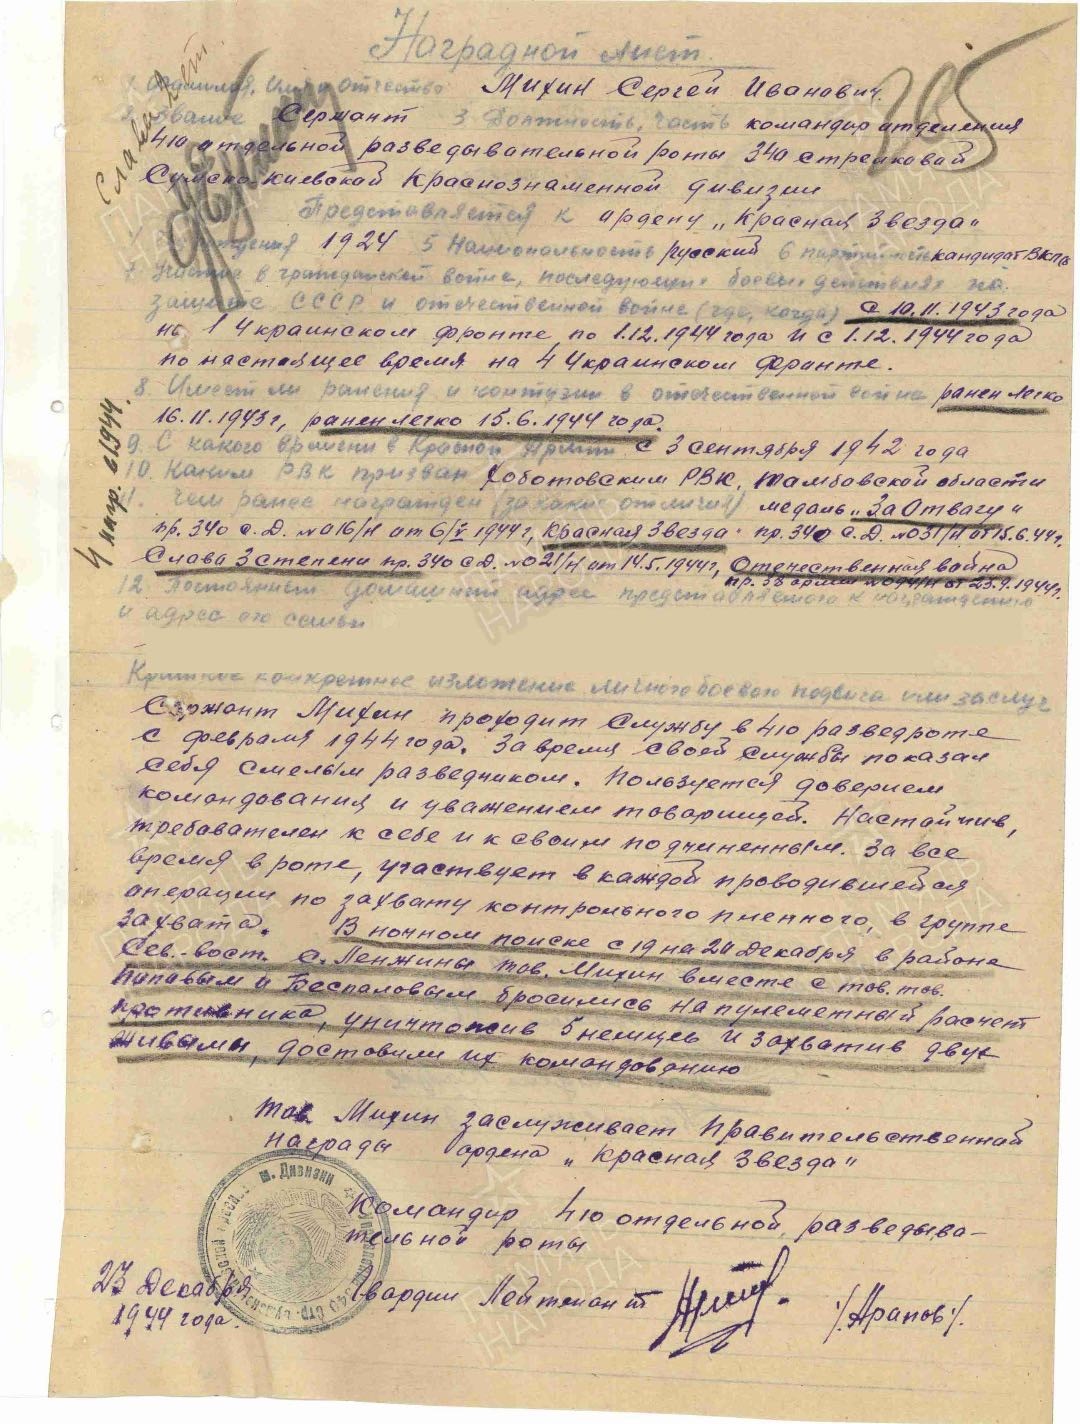 Наградной лист
205
Славы 2 ст.
1. Фамилия, Имя и отчество Михин Сергей Иванович.
2. Звание Сержант 3 Должность, часть командир отделения
410 отдельной разведывательной роты 340 стрелковой
Сумско-Киевской Краснознаменной дивизии
Представляется к ордену „Красная Звезда"
рождения 1924 5 Национальность русский 6 партийность кандидат ВКП/б
7. Участие в гражданской войне, последующих боевых действиях по
защите СССР и отечественной войне (где, когда) с 10.11.1943 года
на 1 Украинском фронте по 1.12.1944 года и с 1.12.1944 года
по настоящее время на 4 Украинском фронте.
8. Имеет ли ранения и контузии в отечественной войне ранен легко
16.11.1943г, ранен легко 15.6.1944 года.
9. С какого времени в Красной Армии с 3 сентября 1942 года
10. Каким РВК призван Хоботовским РВК, Тамбовской области
11. Чем ранее награжден (за какие отличия) медаль „За Отвагу"
пр. 340 с.д. №016/н от 6/V 1944г, Красная Звезда пр. 340 с.д. №031/н от 15.6.44г.
Слава 3 степени пр. 340 с.д. №021/н от 14.5.1944г, Отечественная война
пр. 38 армии №094/н от 23.9.1944г.
4 нагр. 6 1944
12. Постоянный домашний адрес представляемого к награждению
и адрес его семьи
Краткое конкретное изложение личного боевого подвига или заслуг
Сержант Михин проходит службу в 410 разведроте
с февраля 1944 года. За время своей службы показал
себя смелым разведчиком. Пользуется доверием
командования и уважением товарищей. Настойчив,
требователен к себе и к своим подчиненным. За все
время в роте, участвует в каждой проводившейся
операции по захвату контрольного пленного, в группе
захвата. В ночном поиске с 19 на 20 декабря в районе
Сев.-вост. с. Ленжины тов. Михин вместе с тов. тов.
Папавым и Беспаловым бросились на пулеметный расчет
противника, уничтожив 5 немцев и захватив двух
живыми, доставили их командованию
тов. Михин заслуживает правительственной
награды ордена „Красная Звезда"
Командир 410 отдельной разведыва-
тельной роты
Гвардии Лейтенант /Арапов/.
23 декабря
1944 года.